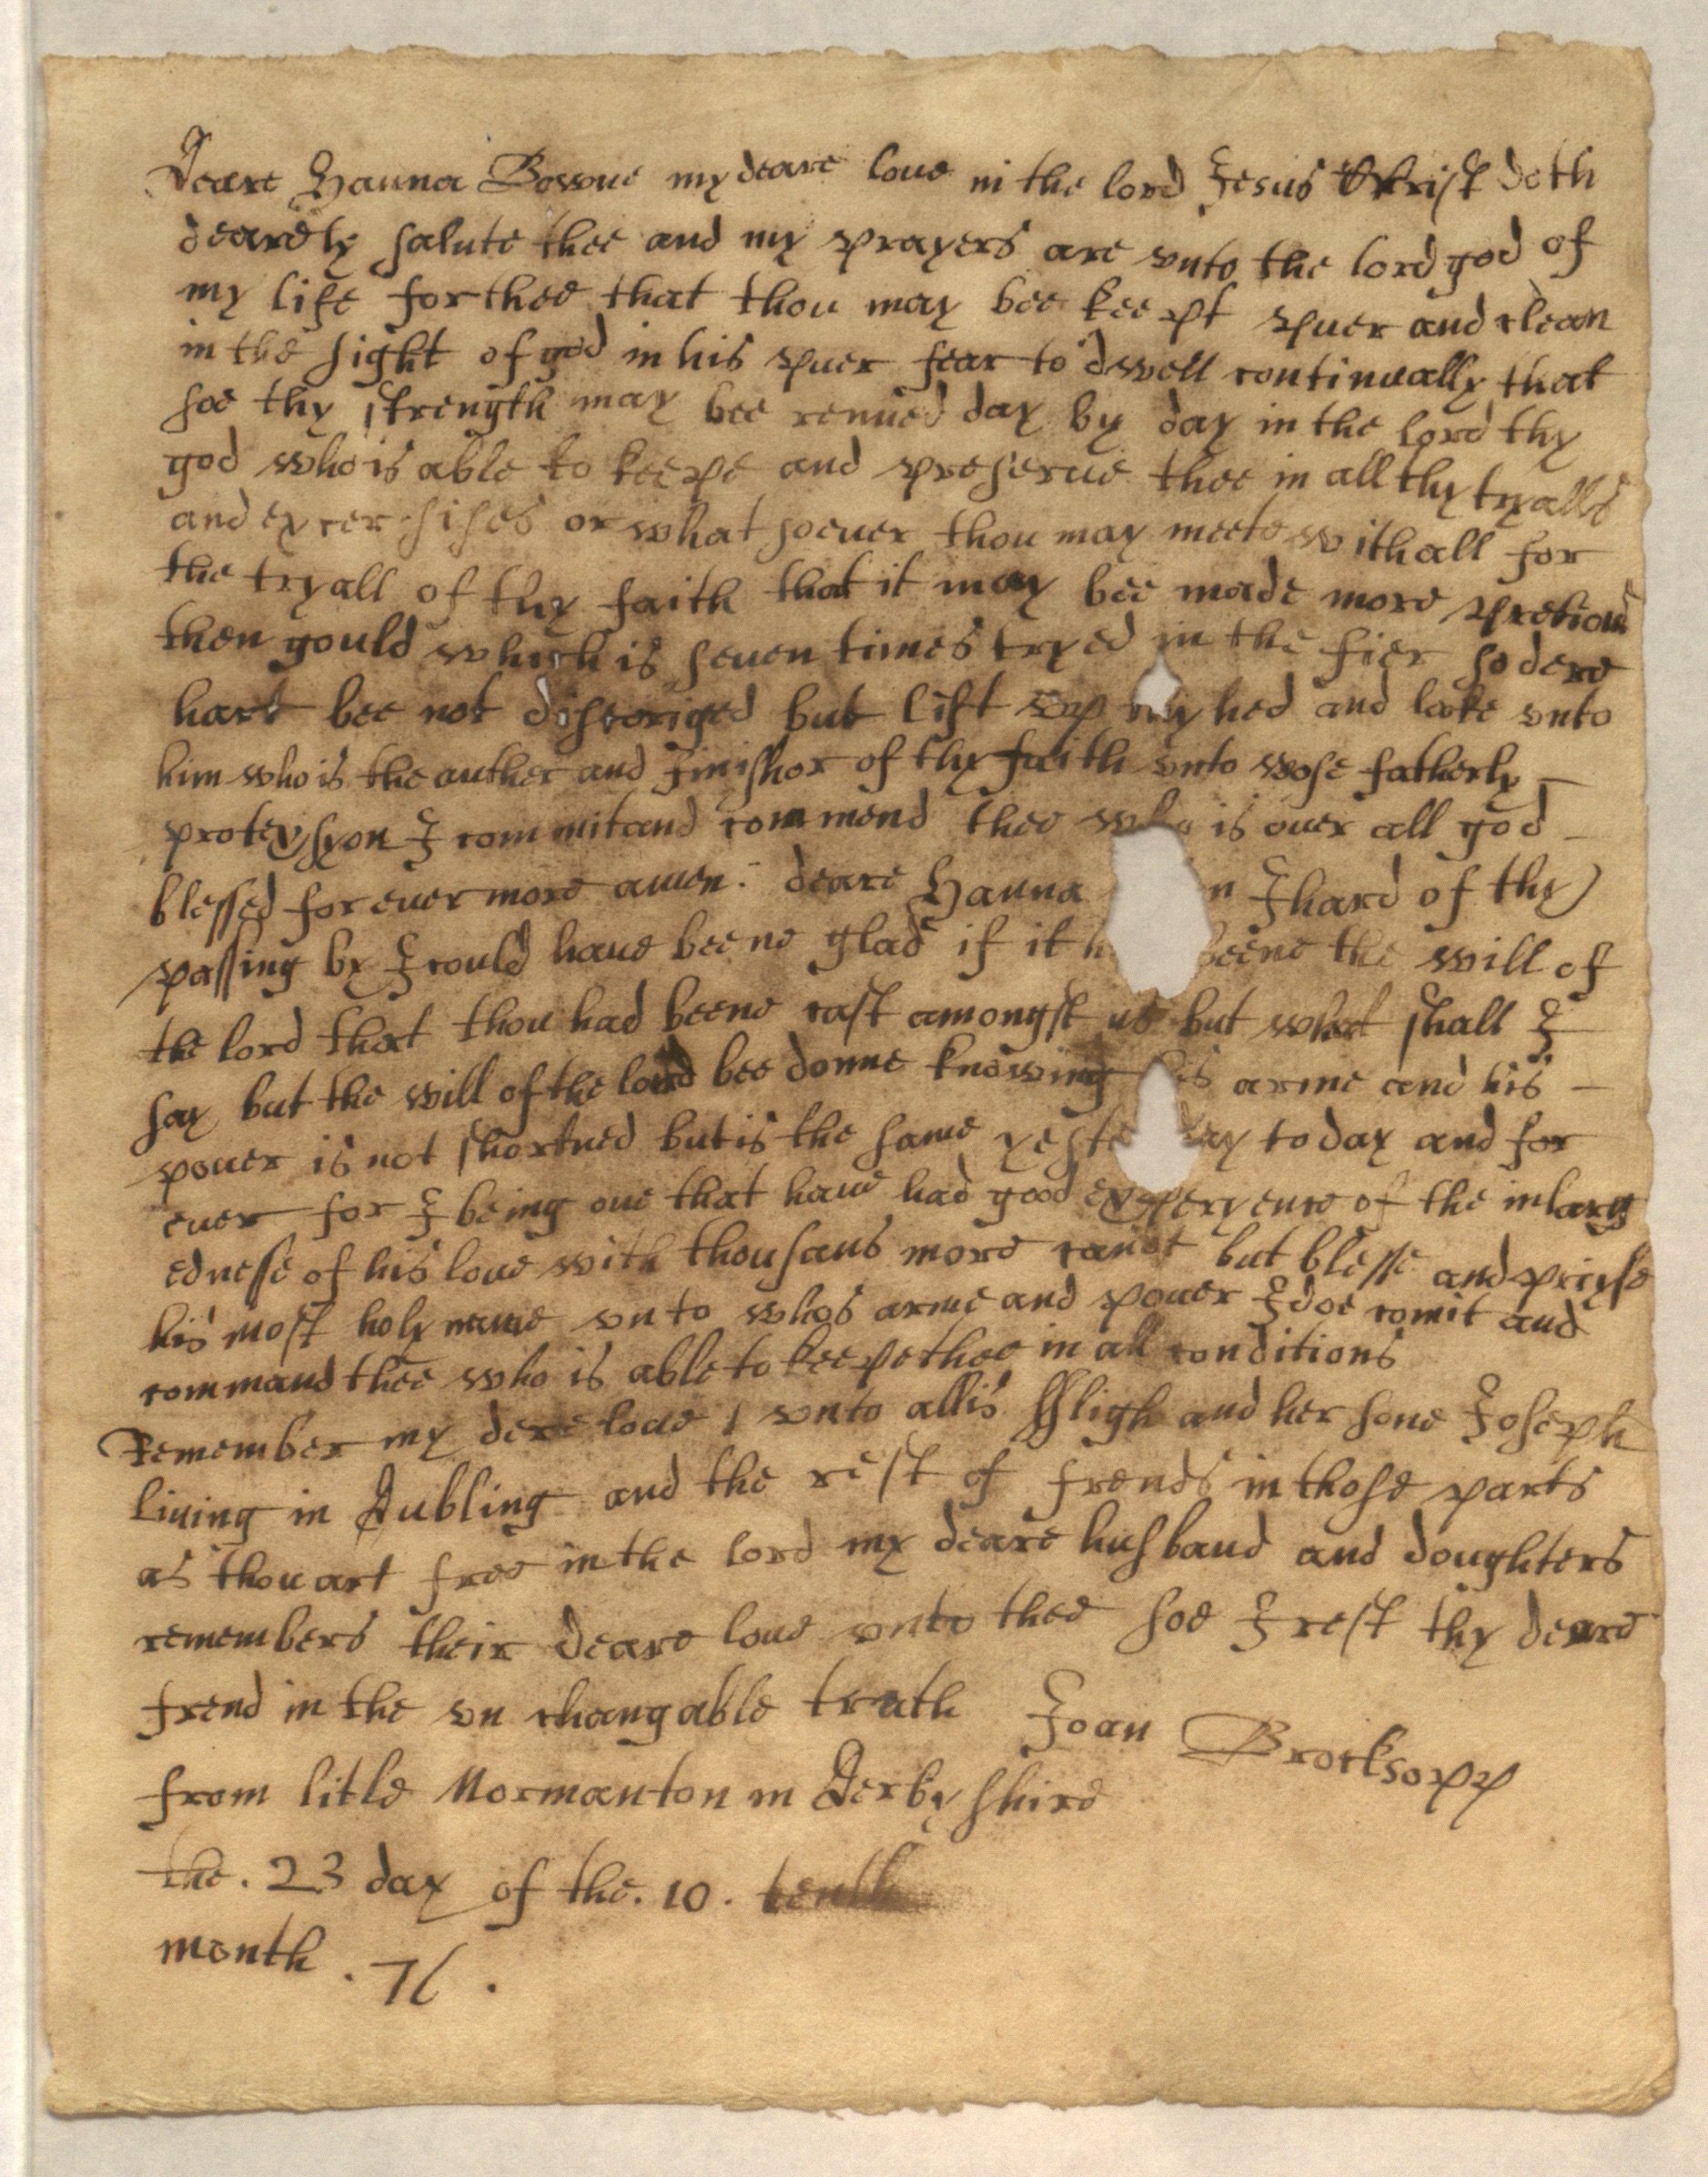 Deare Hanna Bowne my deare loue in the lord Jesus Christ doth
dearely salute thee and my prayers are vnto the lord god of
my life for thee that thou may bee keept puer and clean
in the sight of god in his puer fear to dwell continually that
soe thy strength may bee renued day by day in the lord thy
god who is able to keepe and preserue thee in all thy tryalls
and excersises or what soeuer thou may meete withall for
the tryall of thy faith that it may bee made more pretious
then gould which is seuen times tryed in the fier so dere
hart bee not discoriged but lift vp thy hed and looke vnto
him who is the auther and finishor of thy faith vnto wose fatherly
protexsyon I commit and commend thee who is ouer all god
blessed for euer more amen: deare Hanna I hard of thy
passing by I could haue beene glad if it beene the will of
the lord that thou had beene cast amongst us but what shall I
say but the will of the lord bee donne knowing his arme and his
power is not shortned but is the same yesterday to day and for
euer for I being one that haue had good experyence of the inlarg
ednesse of his loue with thousans more canot but blesse and prayse
his most holy name vn to whos arme and power I doe comit and
command thee who is able to keepe thee in all conditions
Remember my dere loue vnto allis Sligh and her sone Joseph
liuing in Dubling and the rest of frends in those parts
as thou art free in the lord my deare husband and doughters
remembers their deare loue vnto thee soe I rest thy deare
frend in the vn changable truth Joan Brocksopp
from litle Normanton in Derby shire
the . 23 day of the . 10 . tenth
month . 76 .